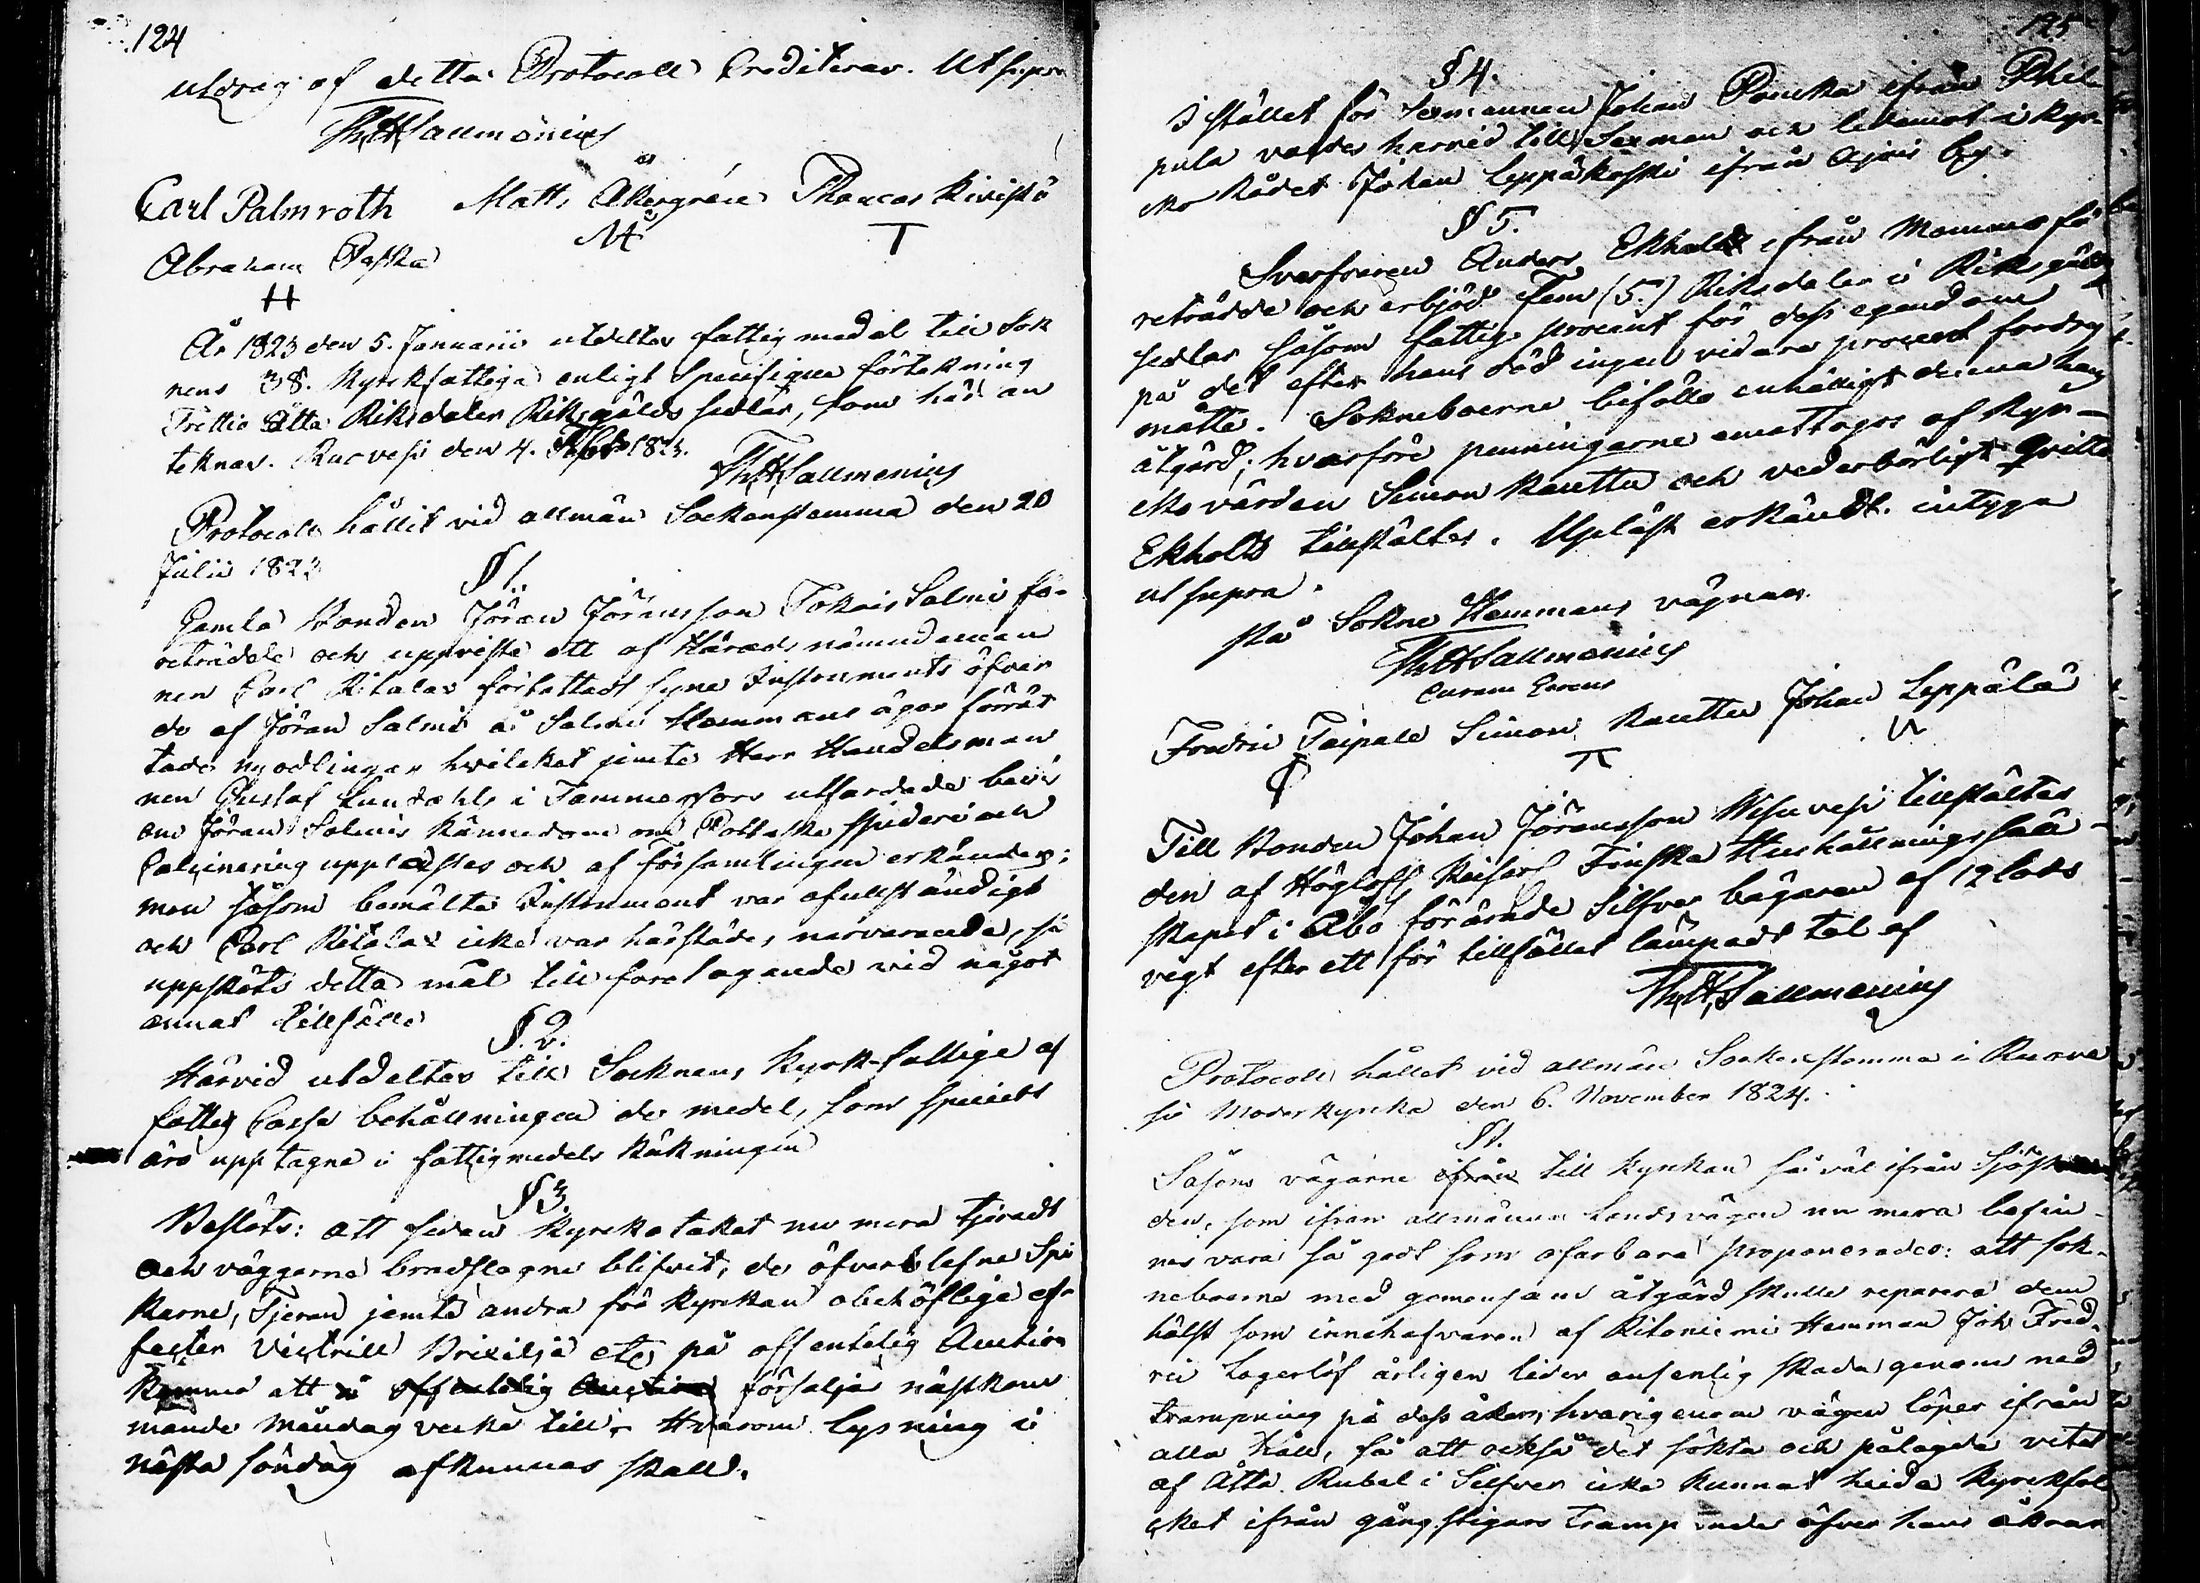 124
utdrag af detta Protocoll Crediteras. Ut supra
Th H Sallmenius
Carl Palmroth Matts Åkergrén Thomas Kivistö
M T
Abraham Paska
H
År 1823 den 5. Januarii utdeltes fattig medel till Sok
nens 38. Kyrkfattiga enligt Specifique förtekning
Trettio Åtta Riksdaler Riksgälds sedlar, som här an
teknas. Ruovesi den 4. 1823.
Th H Sallmenius
Protocoll hållit vid allmän Sockenstemma den 20
Julii 1823
§ 1.
Gamla Bonden Jöran Jöransson Tokois Salmi fö-
reträdde och uppviste ett af Härads nämndeman
nen Carl Ritalax författadt syne Instruments öfver
de af Jöran Salmi å Salmi Hemmans ägor förrät
tade nyodlingar hvilcket jemte Herr Handelsman
nen Gustaf Lundahls i Tammerfors utfärdade bevis
om Jöran Salmis kännedom om Pottaske sjuderi och
Calcinering upplästes och af Församlingen erkändes;
men såsom bemälte Instrument var ofullständigt
och Carl Ritalax icke var härstädes närvarande, så
uppsköts detta mål till företagande vid något
annat tillfälle
§. 2.
Härvid utdeltes till Socknens Kyrk-fattige af
fattig Cassa behållningen de medel, som speciellt
äro upptagne i fattigmedels Räkningen
§ 3.
Beslöts: att sedan Kyrkotaket nu mera tjäradt
och väggarna brädslagne blifvit, de öfverblefne Spi
karne, Tjeran jemte andra för kyrkan obehöflige ef-
fecter Victrill Brixilja etc på offentelig Auction
komma att försäljas nästkom
mande Måndag vecka till, Hvarom lysning i
nästa söndag afkunnas skall.
125
§ 4.
I stället för Sexmannen Johan Ponska ifrån Phil
pula valdes härvid till Sexman och ledamot i kyr-
ko Rådet Johan Leppäkoski ifrån Ajois by.
§ 5.
Svarfvaren Anders Ekholtz ifrån Mommo fö
reträdde och erbjöd Fem (5.) Riksdaler i Riksgälds
sedlar såsom fattig procent för dess egendom
på det efter hans död ingen vidare procent fordras
måtte. Sokneboerne biföllo enhälligt denna hans
åtgärd; hvarföre penningarne emottogos af Kyr-
ko värden Simon Rautto och vederbörligt Qvitto
Ekholtz tillstältes. Upläst erkändt. intyga
ut supra.
På Sokne Hemmans vägnar
Th H Sallmenius
Curam Gerens
Fredric Taipale Simon Rautto Johan Leppälä
Till Bonden Johan Jöransson Visuvesi tillstältes
den af Höglofl. Keiserl Finska Hushållningssäll-
skapet i Åbo förärade Silfver bägaren af 12 lods
vigt efter ett för tillfället lämpadt tal af
Th H Sallmenius
Protocoll hållet vid allmän Sockenstemma i Ruove
si Moderkyrka den 6. November 1824.
§ 1.
Såsom vägarne ifrån till kyrkan så väl ifrån Sjöst
den, som ifrån allmänna Landsvägen nu mera befin-
nes vara så godt som ofarbara proponerades: att sok-
neboerne med gemensam åtgärd skulle reparera dem
hälst som innehafvaren af Ritoniemi Hemman Joh. Fred-
ric Lagerlöf årligen lider ansenlig skada genom ned
trampning på dess åker, hvarigenom vägen löper ifrån
alla håll, så att också det sökta och pålagde vitet
af Åtta Rubel i Silfver icke kunnat hindra kyrkfol
cket ifrån gångstigars trampande öfver hans åkrar